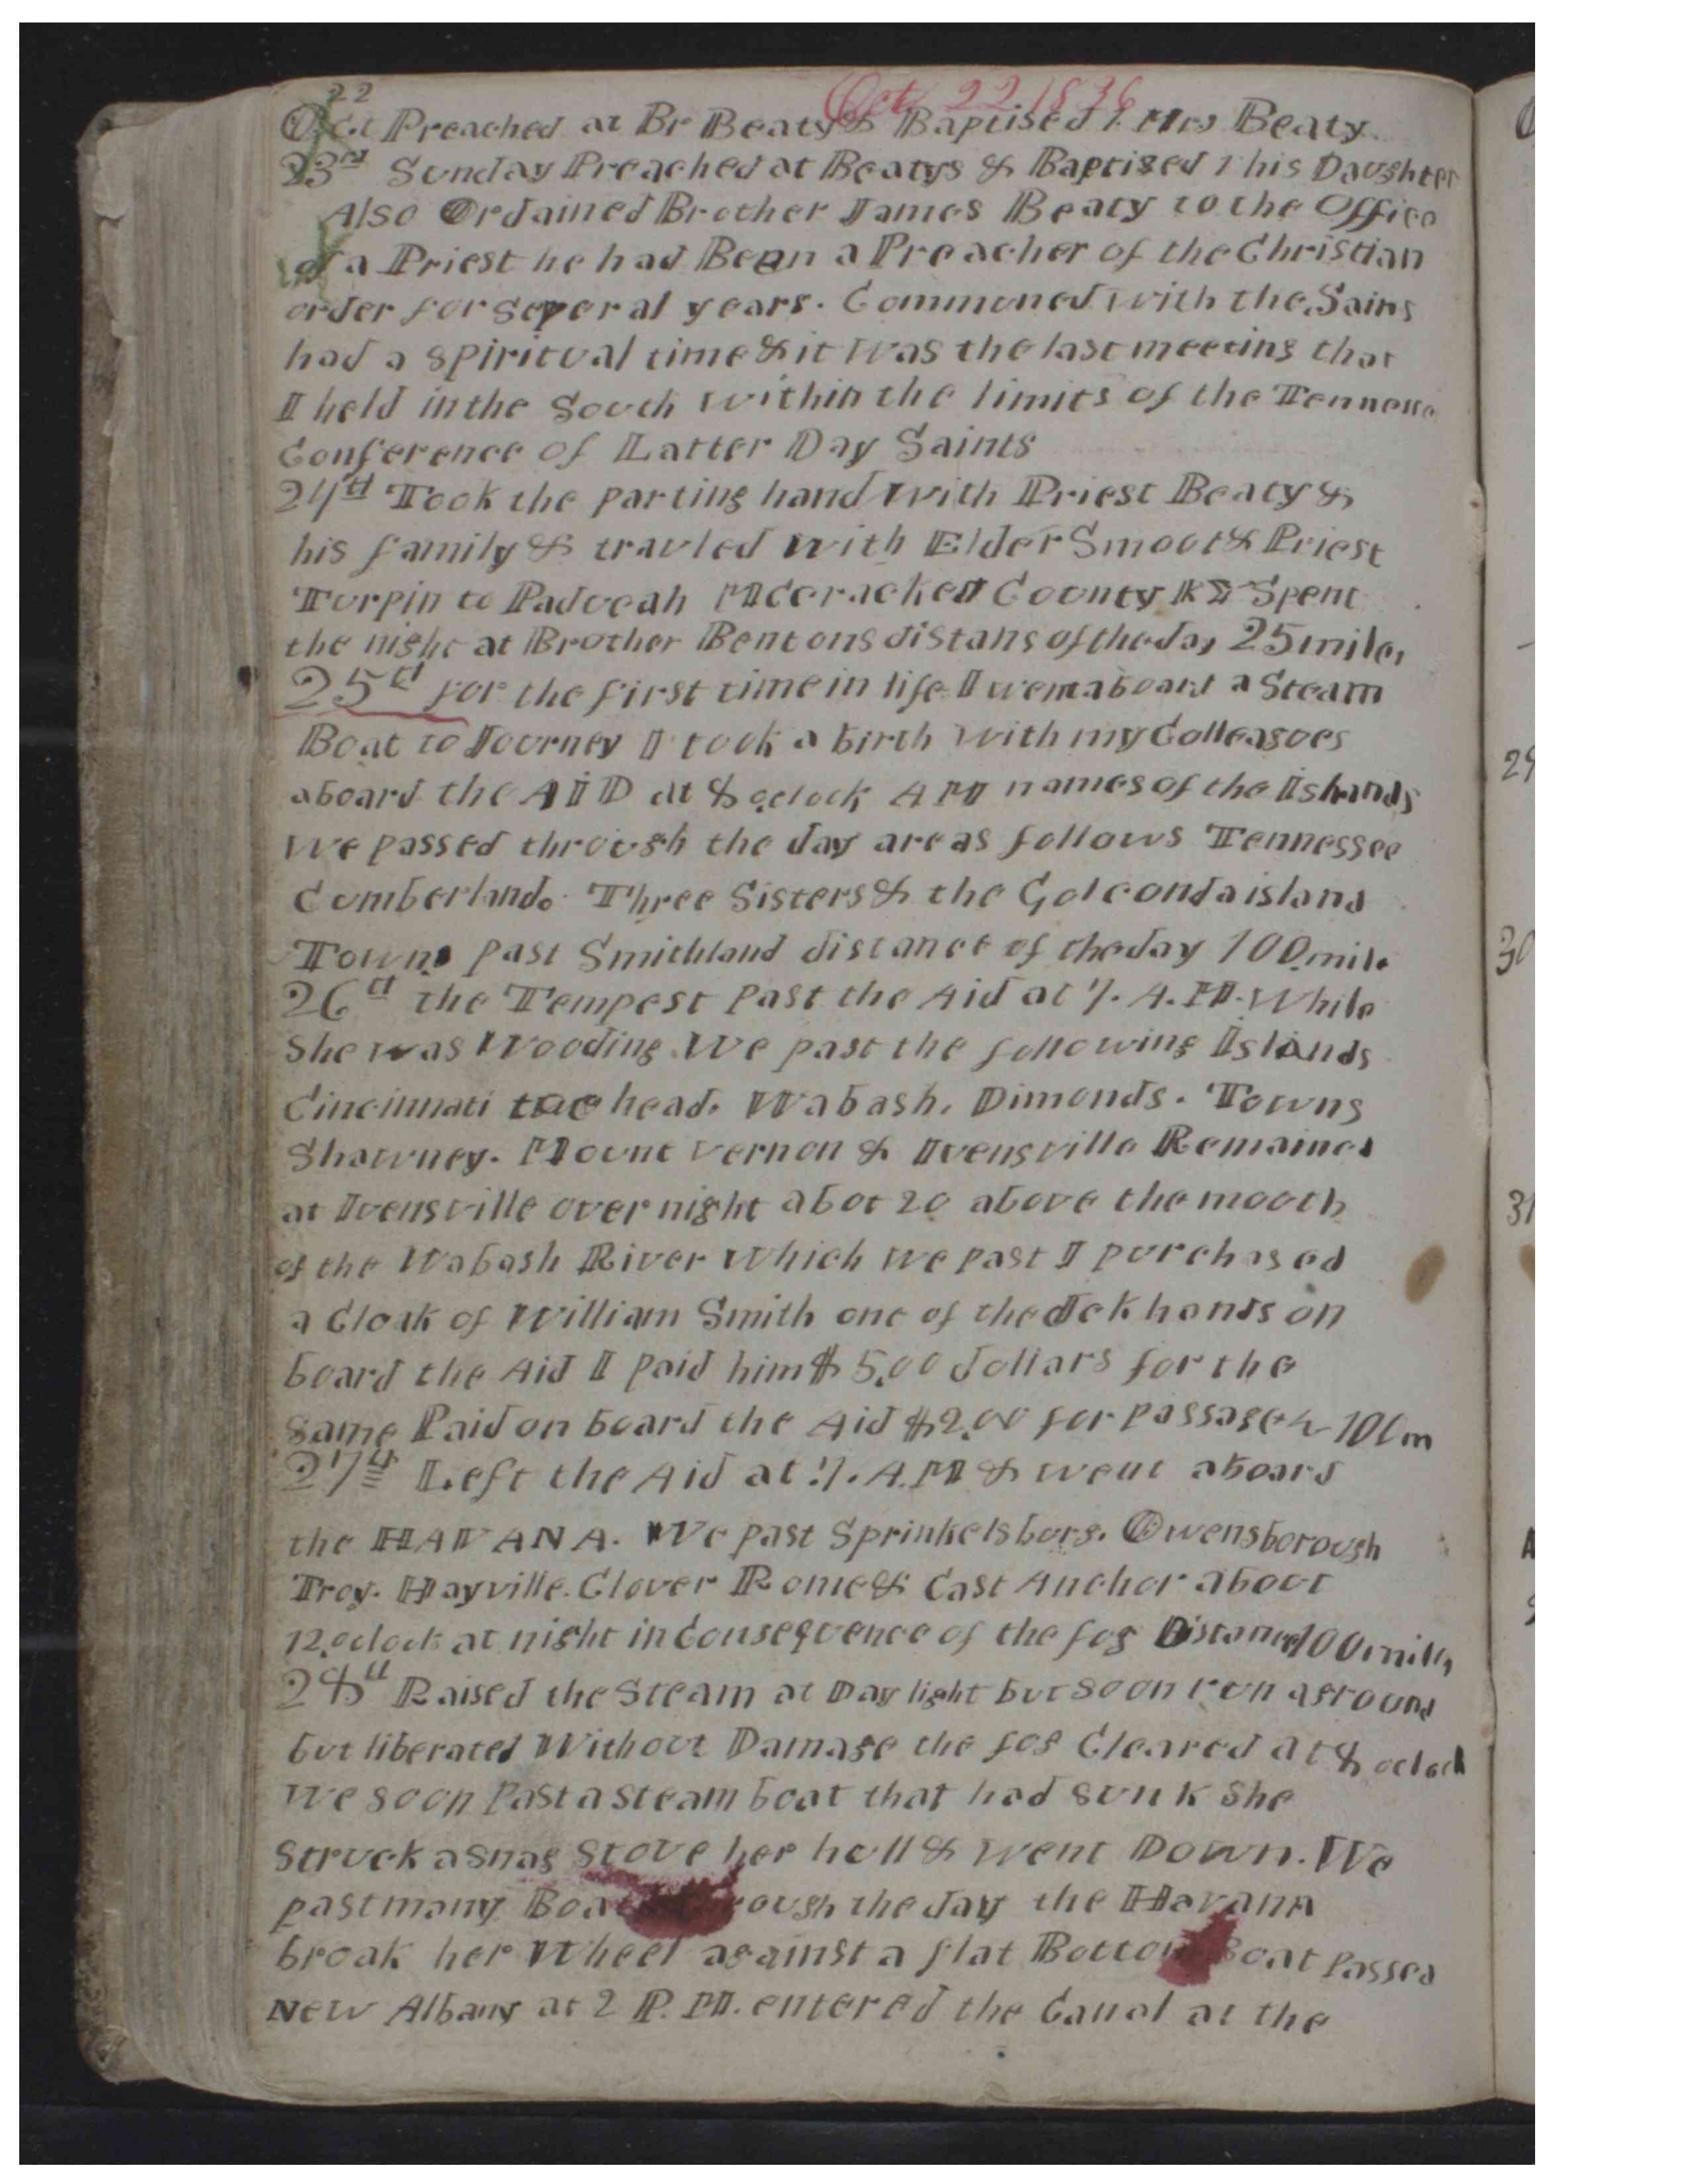 Oct 22 1836
22
Oct Preached at Br Beatys & Baptised 1. Mrs Beaty
23rd Sunday Preached at Beatys & Baptised 1 his Daughter
Also Ordained Brother James Beaty to the Office
of a Priest he had Been a Preacher of the Christian
order for several years. Communed with the Sains
had a spiritual time & it was the last meeting that
I held in the South within the limits of the Tennesse
Conference of Latter Day Saints
24th Took the parting hand with Priest Beaty &
his family & travled with Elder Smoot & Priest
Turpin to Paducah McCracken County KY Spent
the night at Brother Bentons distans of the day 25 miles
25th for the first time in life I went aboard a Steam
Boat to Journey I took a birth with my Colleagues
aboard the AID at 8 oclock AM names of the Islands
we passed through the day are as follows Tennessee
Cumberland. Three Sisters & the Golconda island
Towns past Smithland distance of the day 100 mile
26th the Tempest Past the Aid at 7. A.M. While
She was Wooding We past the following Islands
Cincinnati tow head. Wabash. Dimonds. Towns
Shawney. Mount Vernon & Ivensville Remained
at Ivensville over night abot 20 above the mouth
of the Wabash River Which we past I purchased
a Cloak of William Smith one of the deck hands on
board the Aid I paid him $5.00 dollars for the
same Paid on board the Aid $2.00 for passage 100 m
27th Left the Aid at 7. A.M & went aboard
the HAVANA. We past Sprinkelsburg. Owensborough
Troy. Hayville. Clover Rome & Cast Anchor about
12 oclock at night in Consequence of the fog Distance 100 miles
28th Raised the Steam at Day light but soon run aground
but liberated Without Damage the fog Cleared at 8 oclock
We soon Past a steam boat that had sunk She
Struck a snag Stove her hull & went Down. We
past many Boats through the day the Havana
broak her Wheel against a flat Bottom Boat Passed
New Albany at 2 P.M. entered the Canal at the
29
30
31